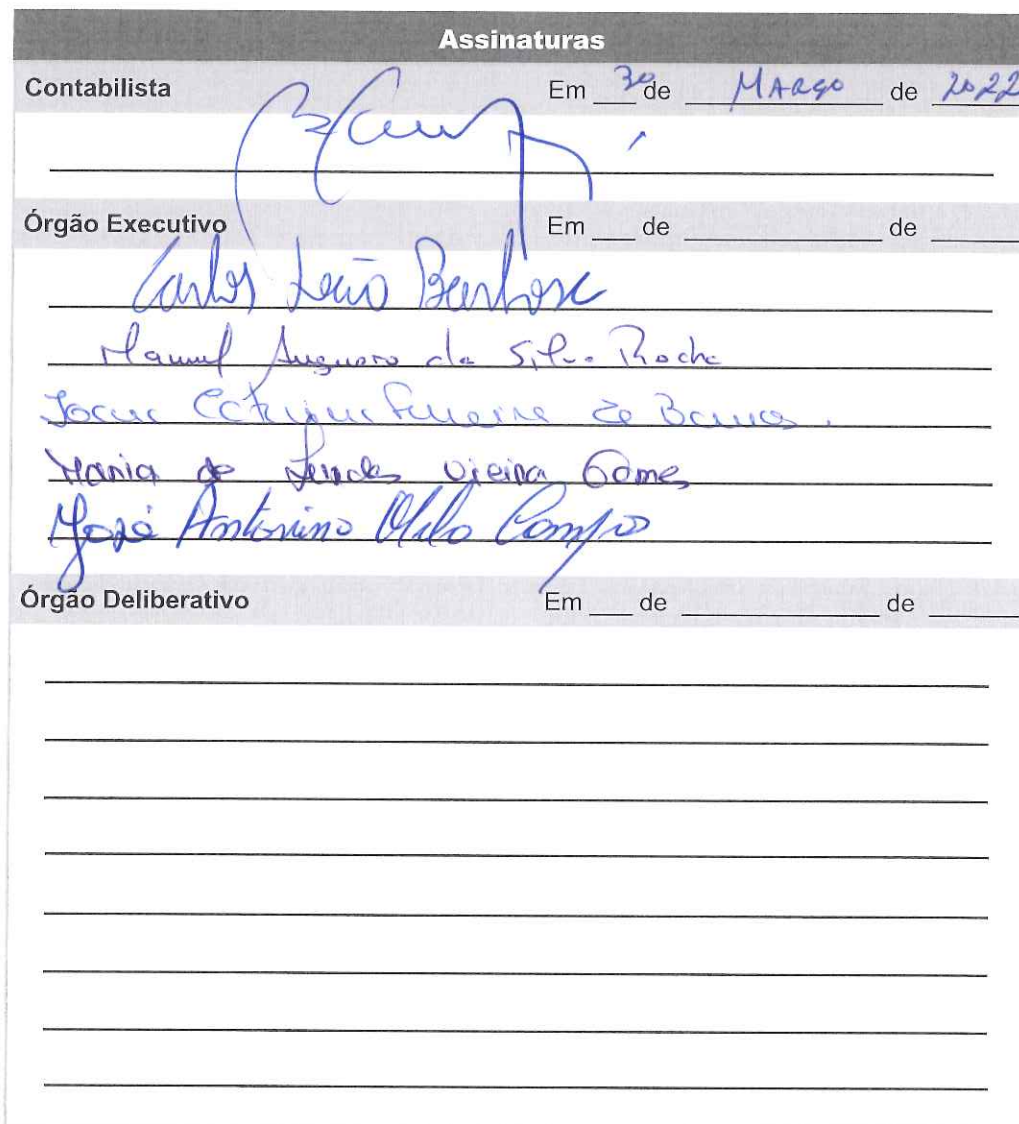 Assinaturas
Contabilista Em 30 de MARÇO de 2022
Órgão Executivo Em de de
Carlos Barbosa
Manuel Augusto da Silva Rocha
Ferreira de Barros.
Maria de Lurdes Vieira Gomes
José Antonino Campos
Órgão Deliberativo Em de de